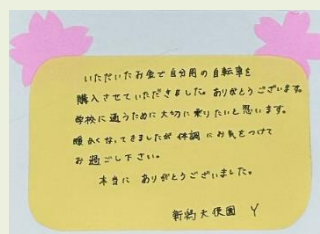 いただいたお金で自分用の自転車を
購入させていただきました。ありがとうございます。
学校に通うために大切に乗りたいと思います。
暖かくなってきましたが体調にお気をつけて
お過ごし下さい。
本当に ありがとうございました。
新潟天使園 Y